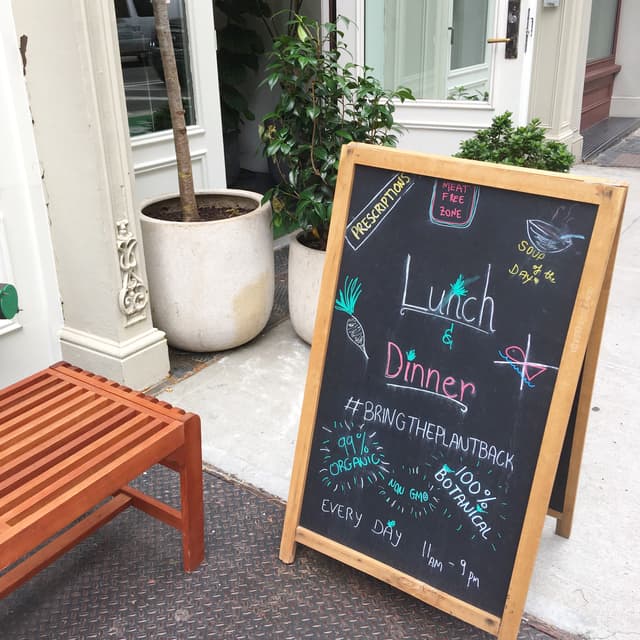 PRESCRIPTIONS
MEAT
FREE
ZONE
SOUP
of the
DAY
Lunch
&
Dinner
#BRINGTHEPLANTBACK
99%
ORGANIC
NON GMO
100%
BOTANICAL
EVERY DAY
11AM - 9PM